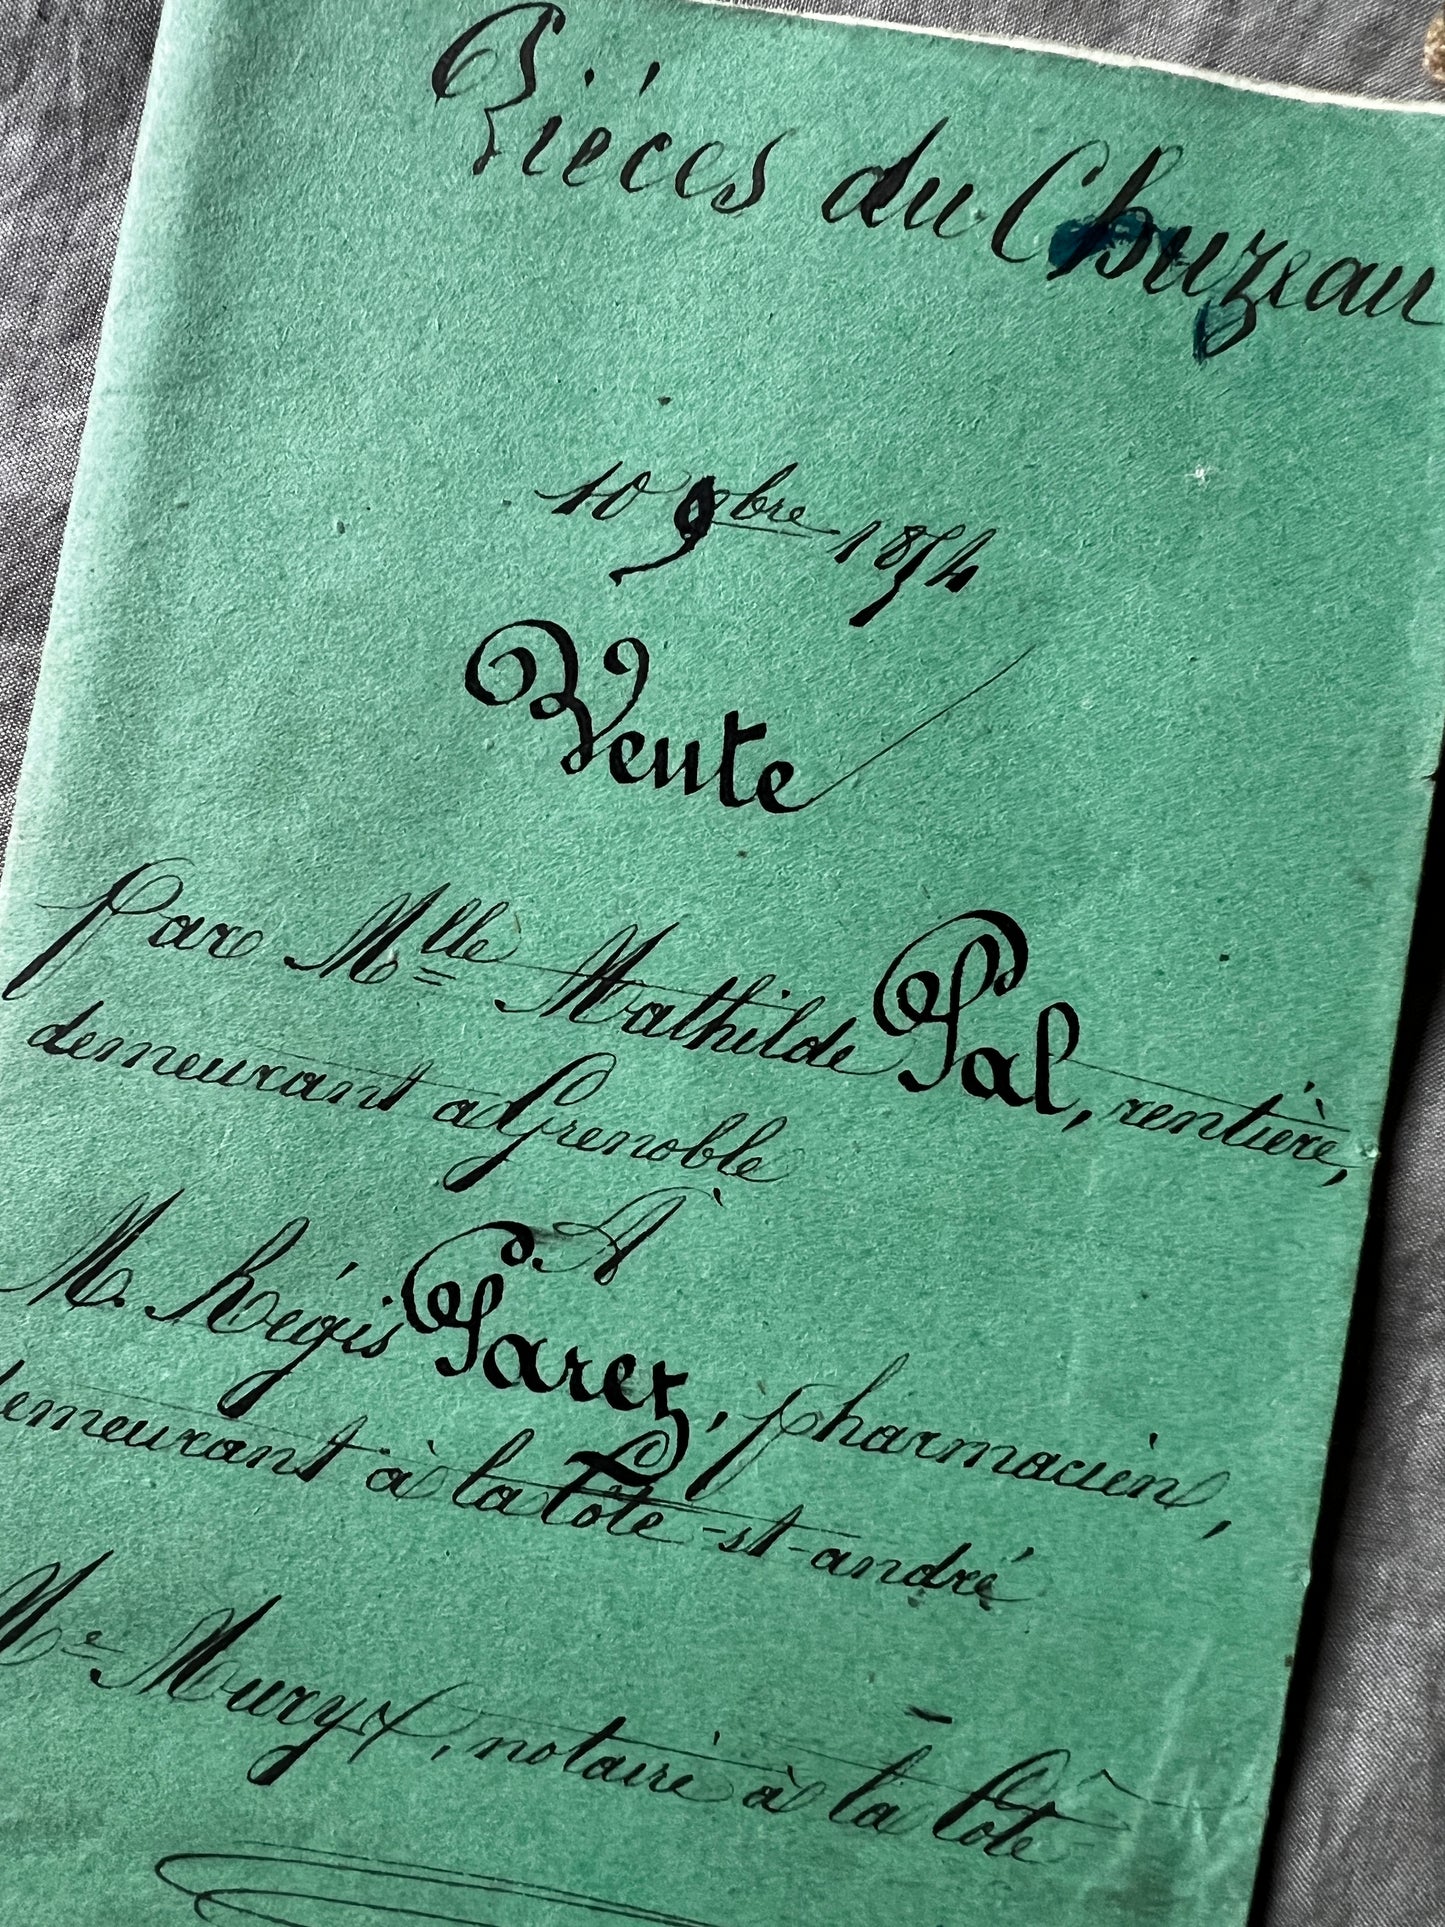 Pièces du Chuzeau
10 9bre 1854
Vente
par Mlle Mathilde Pal, rentière,
demeurant à Grenoble
À
M. Régis Paret, pharmacien,
demeurant à la Côte-st-andré
Me Muryx, notaire à la Côte